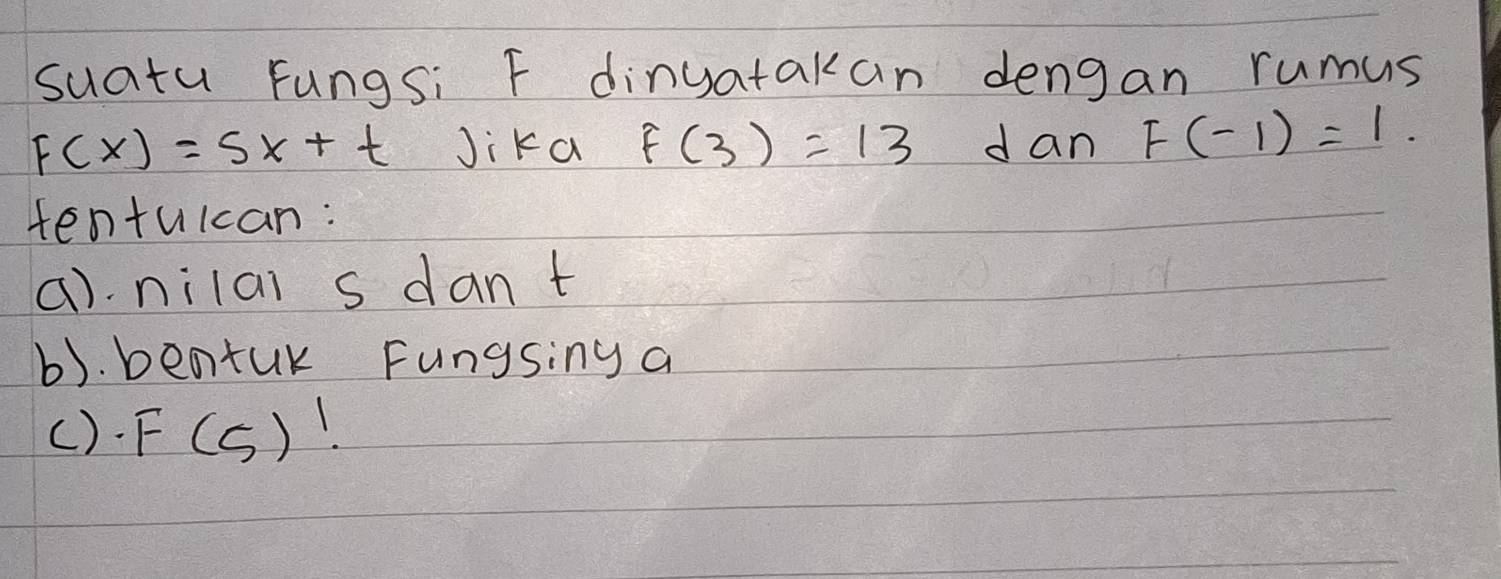 Suatu Fungsi F dinyatakan dengan rumus
F(x) = sx + t Jika F(3) = 13 dan F(-1) = 1.
tentukan :
a). nilai s dan t
b). bentuk Fungsinya
c). F(5)!